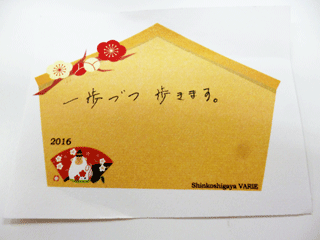 一歩づつ 歩きます。
2016
Shinkoshigaya VARIE